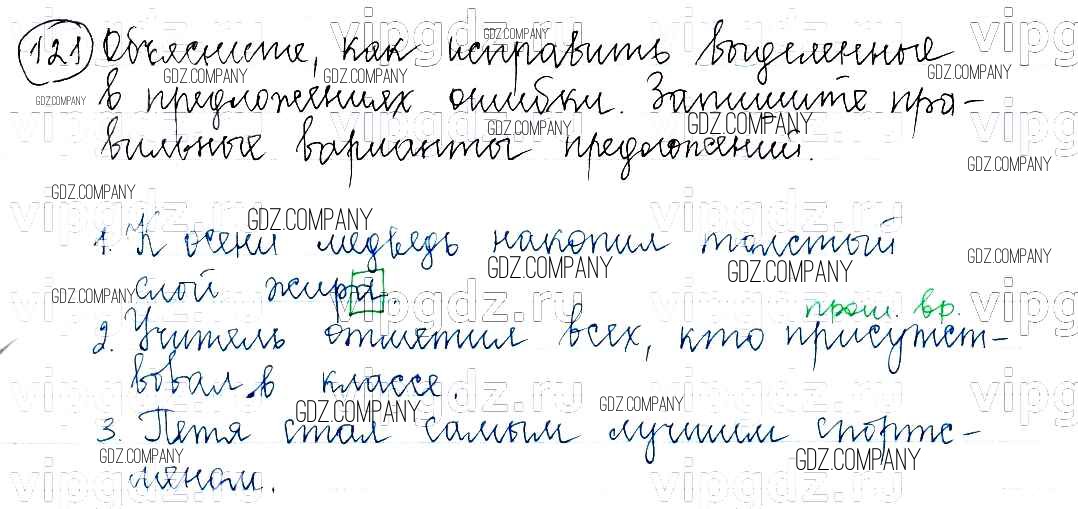 121 Объясните, как исправить выделенные
в предложениях ошибки. Запишите пра-
вильные варианты предложений.
1. К осени медведь накопил толстый
слой жира.
прош. вр.
2. Учитель отметил всех, кто присутст-
вовал в классе.
3. Петя стал самым лучшим спортс-
меном.